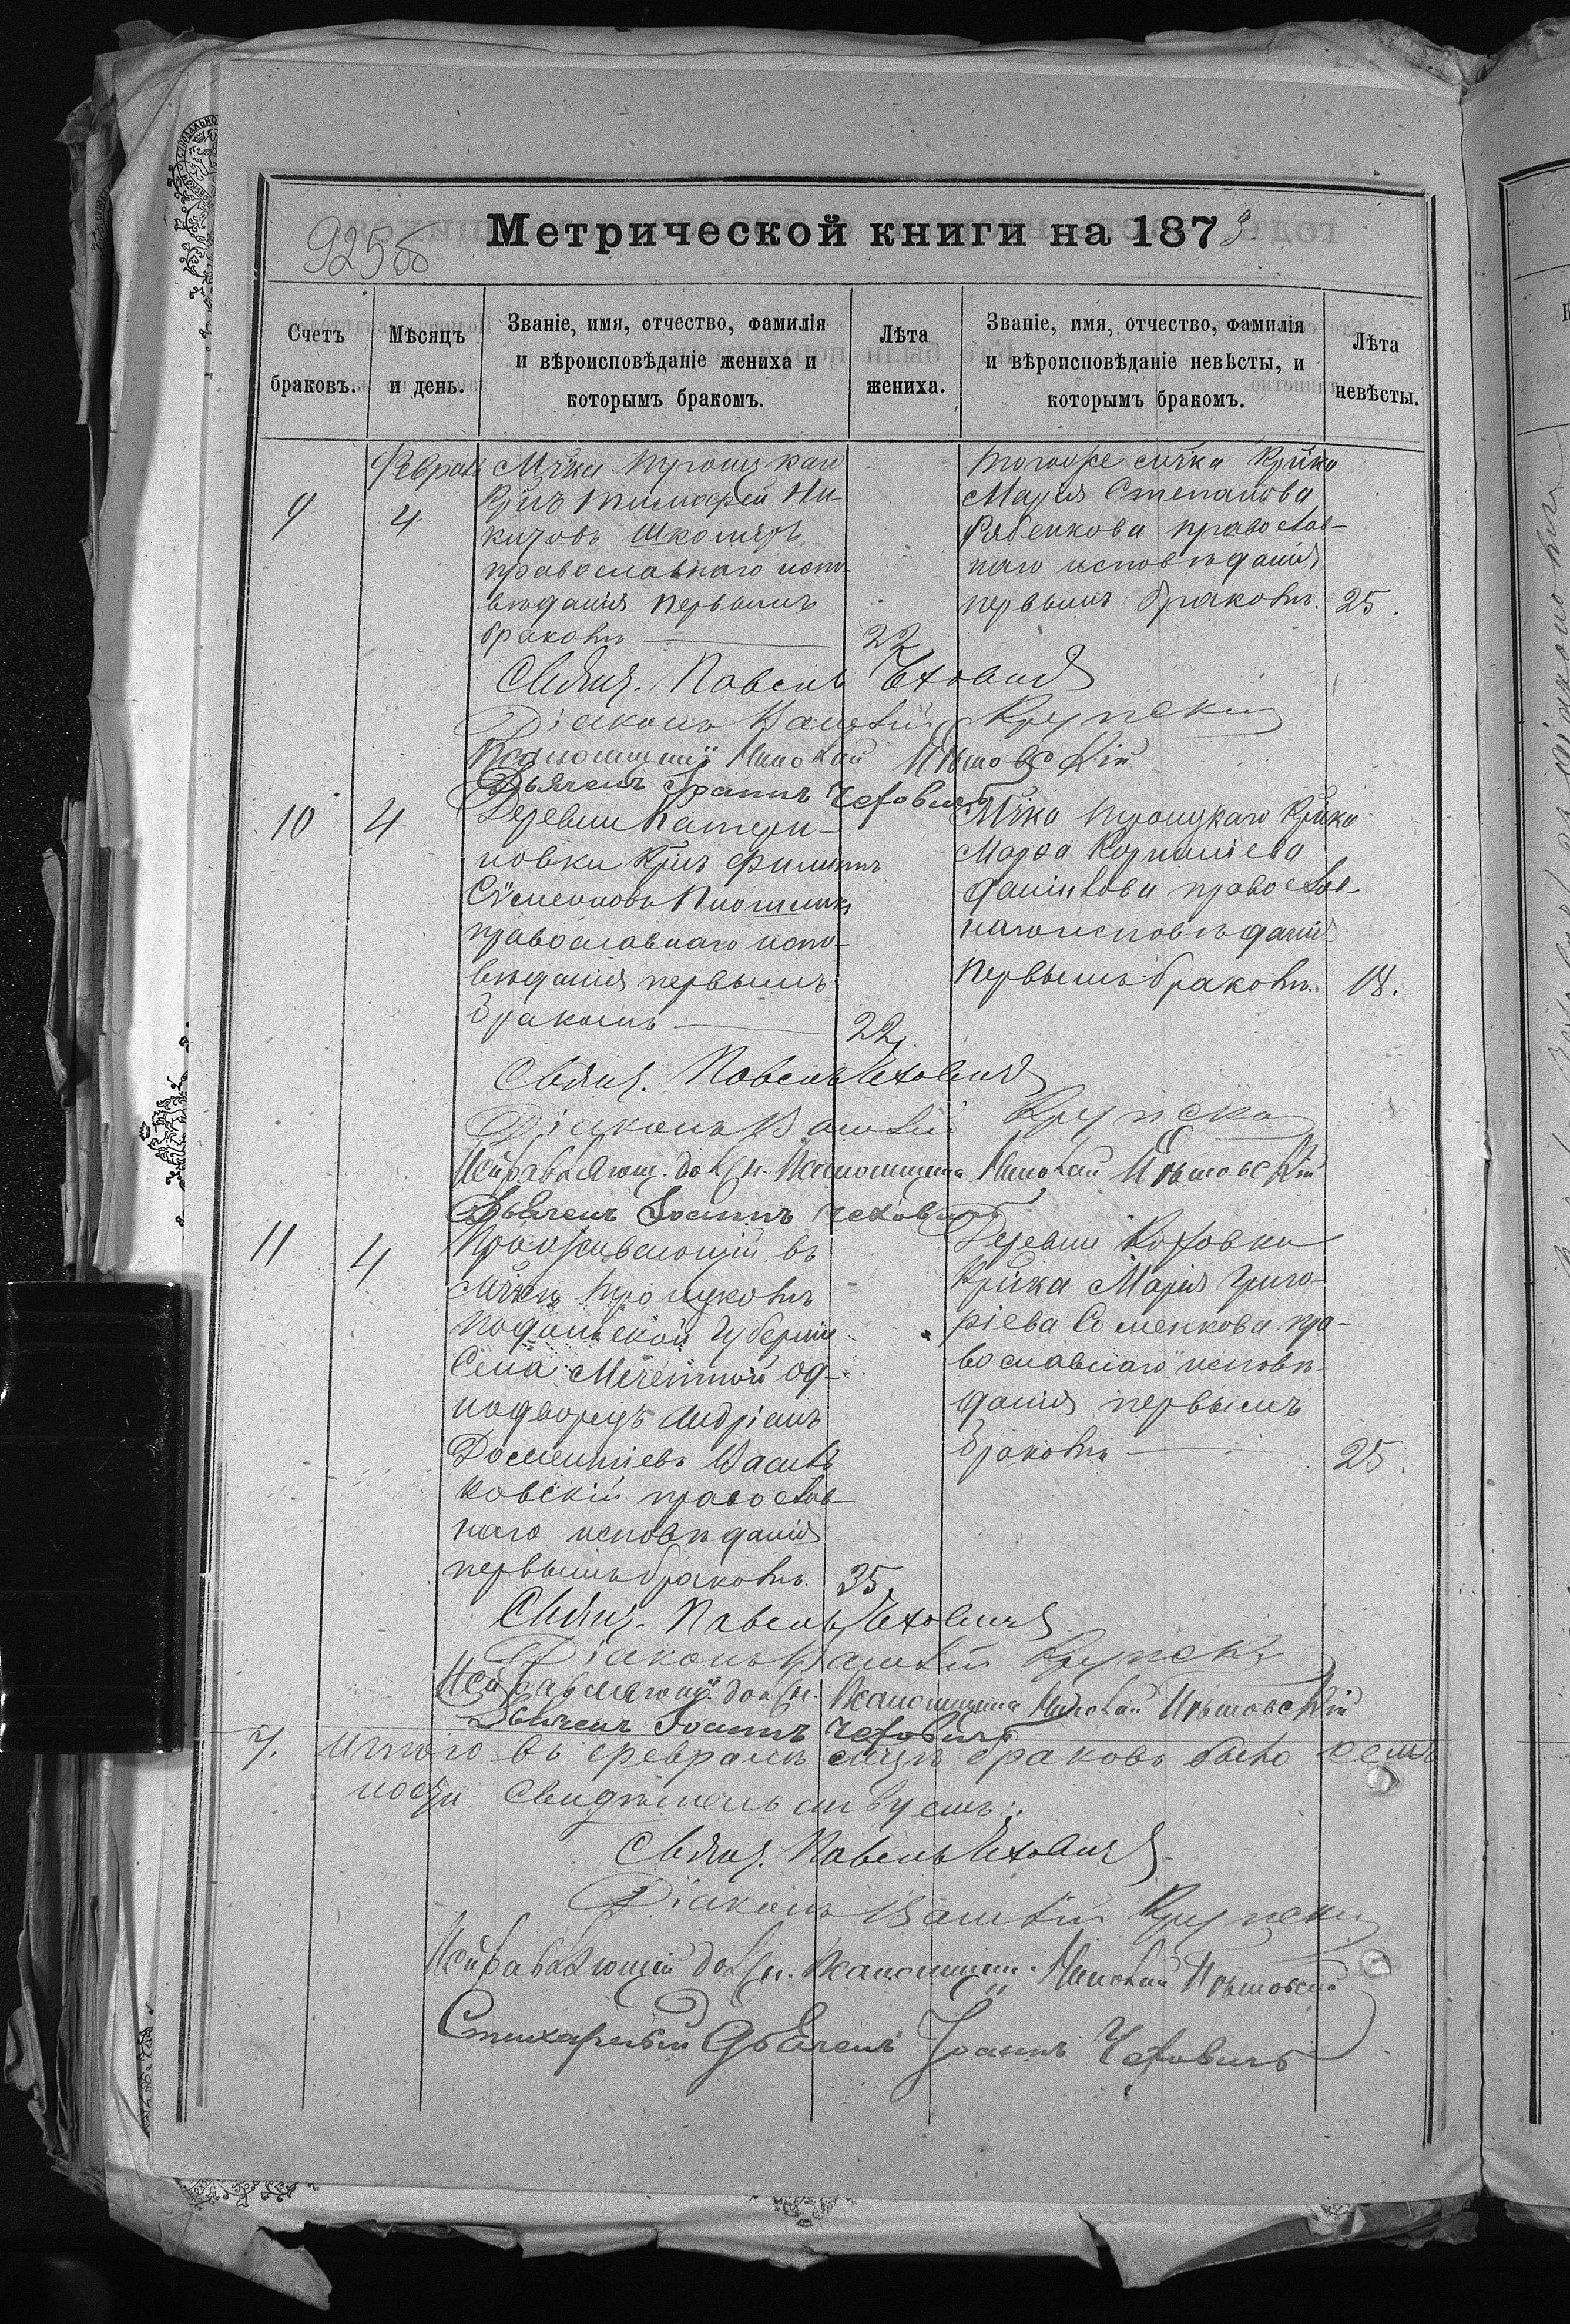 925об
Метрической книги на 1873
Счетъ браковъ.
Мѣсяцъ и день.
Званіе, имя, отчество, фамилія и вѣроисповѣданіе жениха и которымъ бракомъ.
Лѣта жениха.
Званіе, имя, отчество, фамилія и вѣроисповѣданіе невѣсты, и которымъ бракомъ.
Лѣта невѣсты.
Феврал
9
4
Мѣчка Троицкаго
Кр̃нъ Тимофей Ни-
китовъ Школяръ
православнаго испо-
вѣданія первымъ
бракомъ
22
тогоже мѣчка Кр̃нка
Марія Степанова
Рябенкова православ-
наго исповѣданія
первымъ бракомъ.
25.
Священ. Павелъ Чеховичъ
Діаконъ Василій Крупскій
Николай
Дьячекъ Іоаннъ Чеховичъ
10
4
Деревни Катери-
новки Кр̃нъ Филиппъ
Сѵмеоновъ
православнаго испо-
вѣданія первымъ
бракомъ
22.
Мѣчка Троицкаго Кр̃нка
Марѳа Корниліева
Данилова православ-
наго исповѣданія
первымъ бракомъ.
18.
Священ. Павелъ Чеховичъ
Діаконъ Василій Крупскій
Исправляющ. должн. Псаломщика Николай
Дьячекъ Іоаннъ Чеховичъ
11
4
Проживающій въ
мѣчкѣ Троицкомъ
Подольской губерніи
Села Мечетной од-
нодворецъ Андріанъ
Дометіевъ Василь
ковскій православ-
наго исповѣданія
первымъ бракомъ.
35.
Деревни Коховки
Кр̃нка Марія Григо-
ріева Семенкова пра-
вославнаго исповѣ-
данія первымъ
бракомъ
25.
Священ. Павелъ Чеховичъ
Діаконъ Василій Крупскій
Исправляющій должн. Псаломщика Николай
Дьячекъ Іоаннъ Чеховичъ
7. Итого въ февралѣ мц̃ѣ браковъ было семь
свидѣтельствуемъ:
Священ. Павелъ Чеховичъ
Діаконъ Василій Крупскій
Исправляющій должн. Псаломщик. Николай
Стихарный Дьячекъ Іоаннъ Чеховичъ